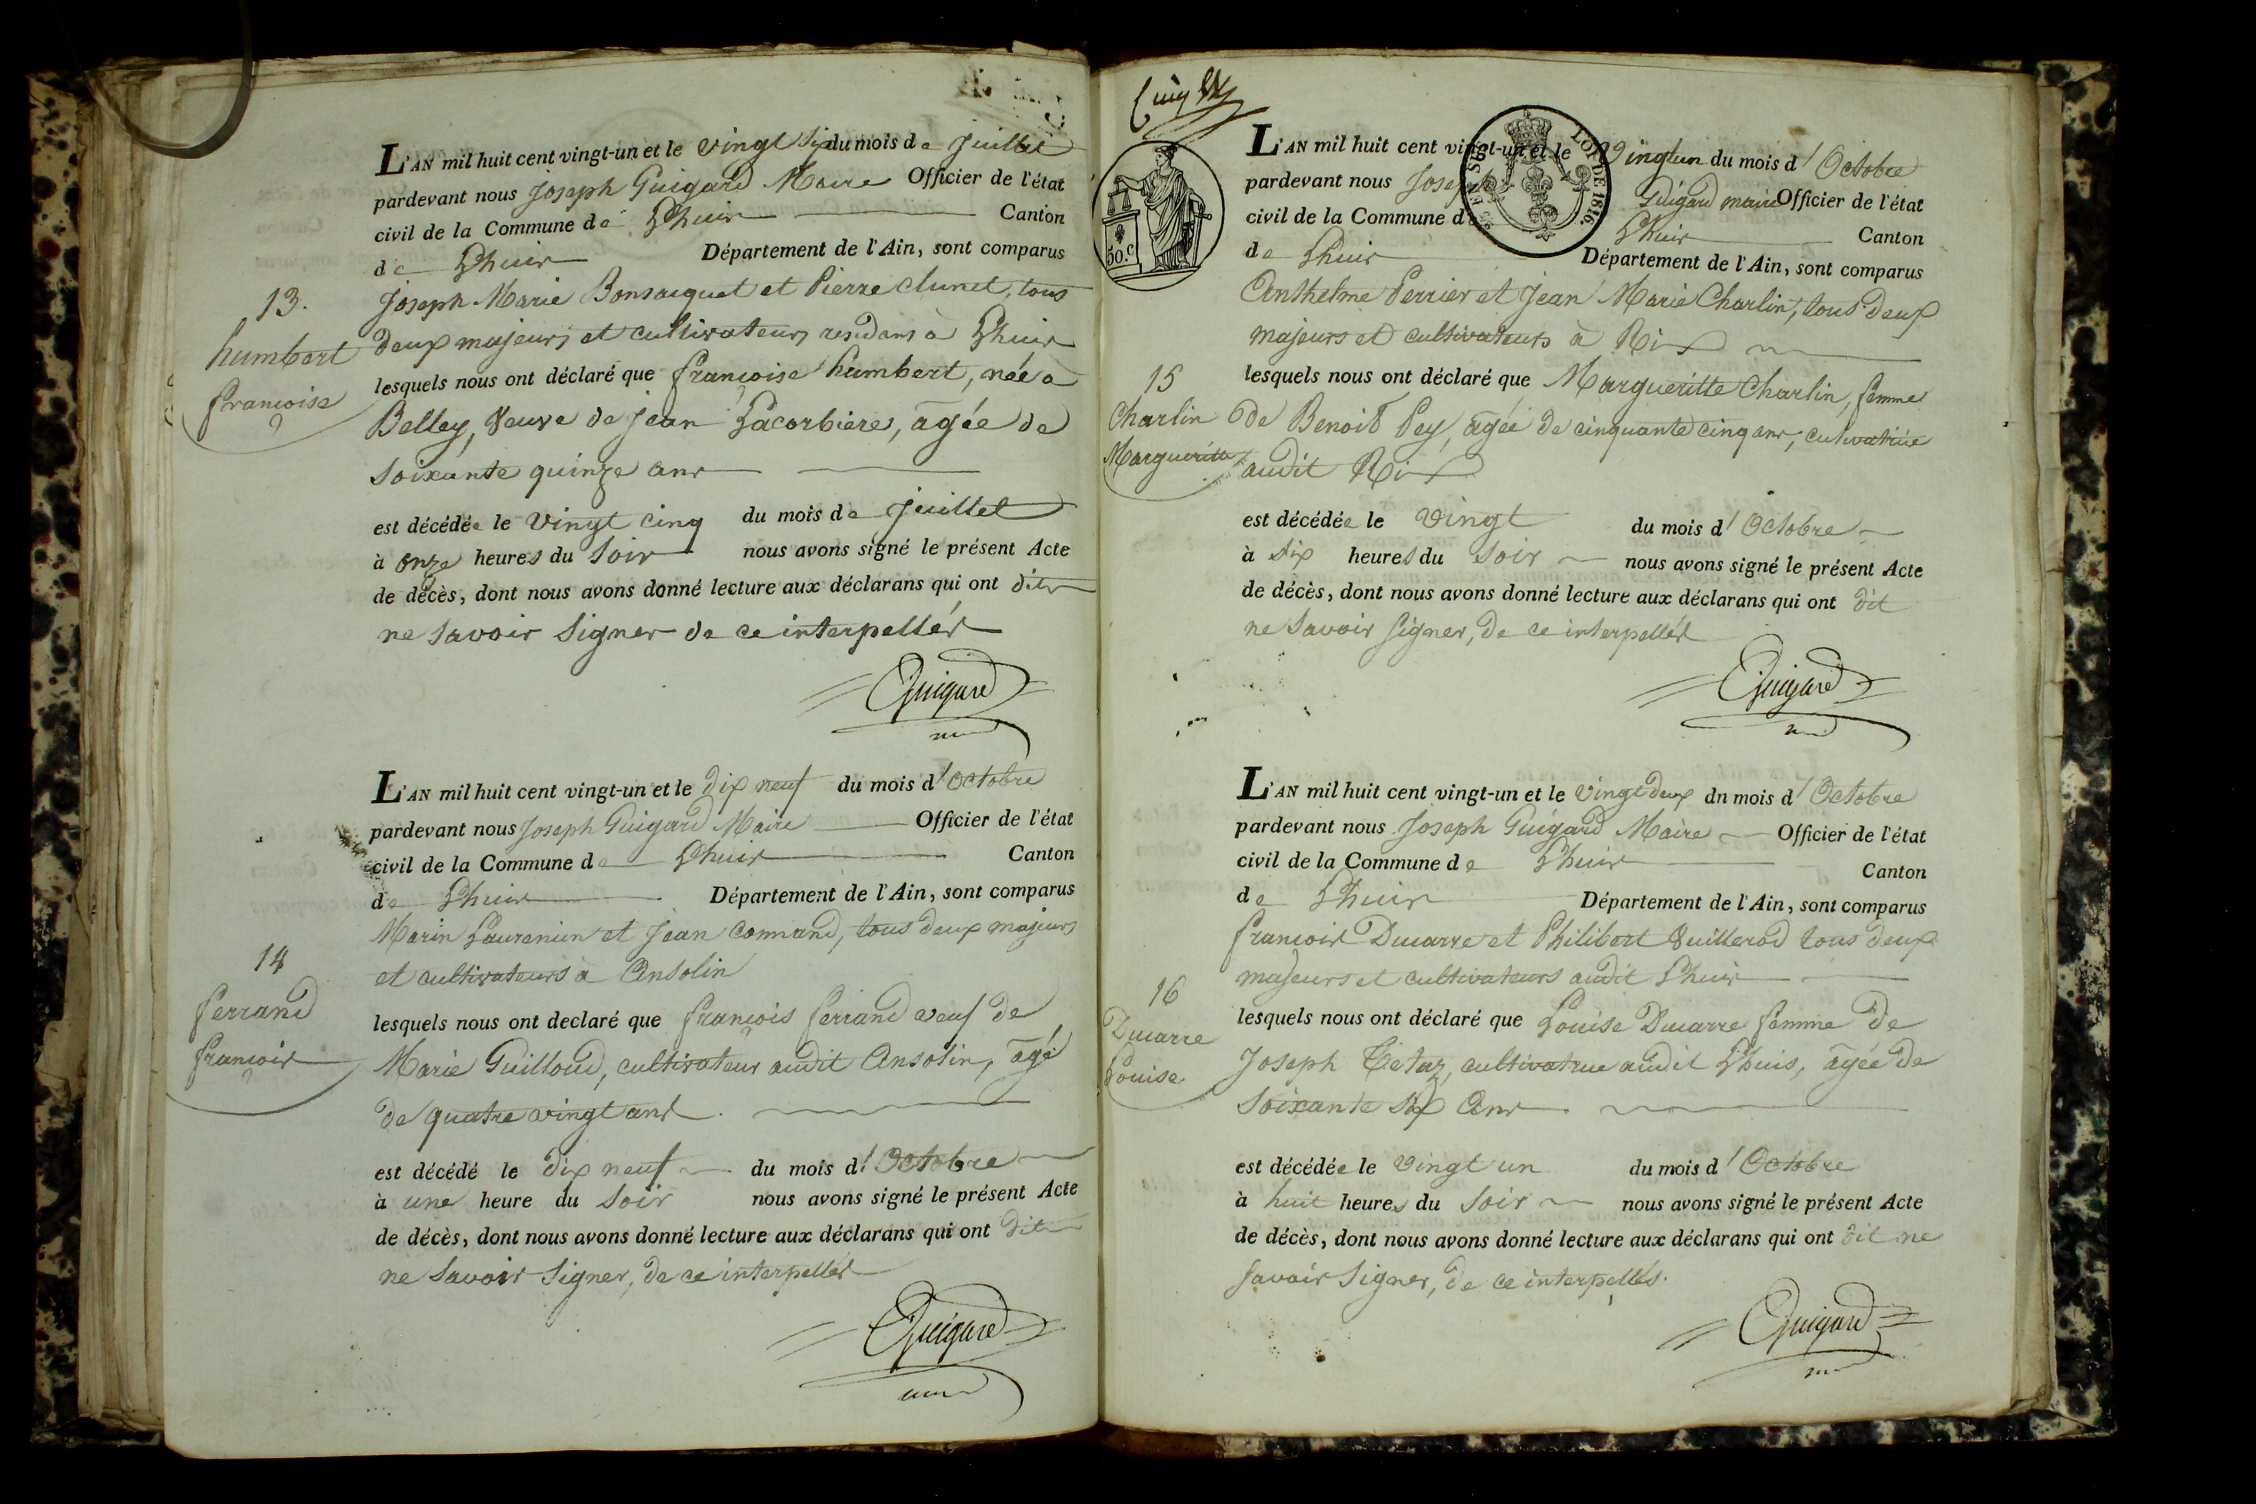 L'AN mil huit cent vingt-un et le vingt six du mois de Juillet
pardevant nous Joseph Guigard Maire Officier de l'état
civil de la Commune de Lhuis Canton
de Lhuis Département de l'Ain, sont comparus
13.
humbert
françoise
Joseph Marie Bonsacquet et Pierre Clunet, tous
deux majeurs et cultivateurs residans à Lhuis
lesquels nous ont déclaré que françoise humbert, née à
Belley, Veuve de jean Lacorbiere, âgée de
soixante quinze ans
est décédée le vingt cinq du mois de Juillet
à onze heures du soir nous avons signé le présent Acte
de décès, dont nous avons donné lecture aux déclarans qui ont dits
ne savoir signer de ce interpellés
Guigard
L'AN mil huit cent vingt-un et le dix neuf du mois d'Octobre
pardevant nous Joseph Guigard Maire Officier de l'état
civil de la Commune de Lhuis Canton
de Lhuis Département de l'Ain, sont comparus
14
ferrand
françois
Marin Laurencin et Jean Connand, tous deux majeurs
et cultivateurs à Ansolin
lesquels nous ont declaré que françois ferrand veuf de
Marie Guilloud, cultivateur audit Ansolin, âgé
de quatre vingt ans.
est décédé le dix neuf du mois d'Octobre
à une heure du soir nous avons signé le présent Acte
de décès, dont nous avons donné lecture aux déclarans qui ont dit
ne savoir signer, de ce interpellés
Guigard
50.c
LOI DE 1816.
L'AN mil huit cent vingt-un et le Vingtun du mois d'Octobre
pardevant nous Joseph Guigard maire Officier de l'état
civil de la Commune de Lhuis Canton
de Lhuis Département de l'Ain, sont comparus
15
Charlin
Margueritte
Anthelme Perrier et Jean Marie Charlin, tous deux
majeurs et cultivateurs à Rix
lesquels nous ont déclaré que Margueritte Charlin, femme
de Benoit Pey, âgée de cinquante cinq ans, cultivatrice
audit Rix
est décédée le vingt du mois d'Octobre
à dix heures du soir nous avons signé le présent Acte
de décès, dont nous avons donné lecture aux déclarans qui ont dit
ne savoir signer, de ce interpellés
Guigard
L'AN mil huit cent vingt-un et le vingt deux dn mois d'Octobre
pardevant nous Joseph Guigard Maire Officier de l'état
civil de la Commune de Lhuis Canton
de Lhuis Département de l'Ain, sont comparus
16
Ducarre
Louise
françois Ducarre et Philibert Vuillerod tous deux
majeurs et cultivateurs audit Lhuis
lesquels nous ont déclaré que Louise Ducarre femme de
Joseph Tetaz, cultivatrice audit Lhuis, âgée de
soixante six ans.
est décédée le vingt un du mois d'Octobre
à huit heures du soir nous avons signé le présent Acte
de décès, dont nous avons donné lecture aux déclarans qui ont dit ne
savoir signer, de ce interpellés.
Guigard